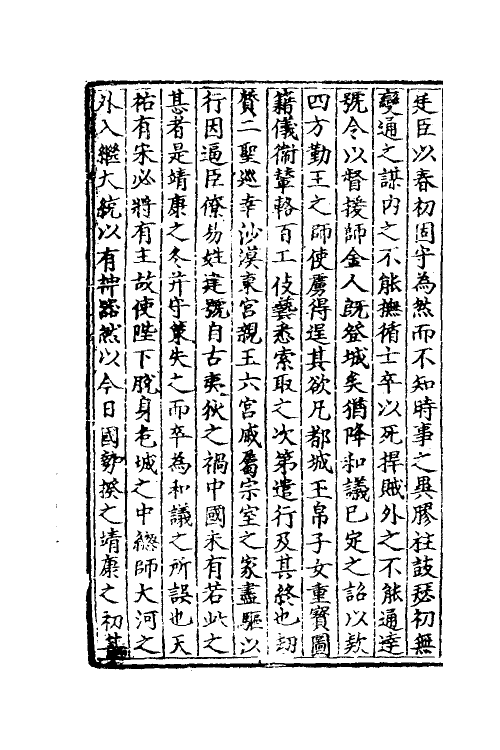 廷臣以春初固守為然而不知時事之異膠柱鼓瑟初無
變通之謀内之不能撫循士卒以死捍賊外之不能通達
號令以督援師金人既登城矣猶降和議已定之詔以款
四方勤王之師使虜得逞其欲凡都城王帛子女重寳圖
籍儀衛輦輅百工伎藝悉索取之次第遣行及其終也刼
質二聖巡幸沙漠東宫親王六宫戚屬宗室之家盡驅以
行因逼臣僚易姓建號自古夷狄之禍中國未有若此之
甚者是靖康之冬并守策失之而卒為和議之所誤也天
祐有宋必將有主故使陛下脱身危城之中總師大河之
外入繼大統以有神器然以今日國勢揆之靖康之初其